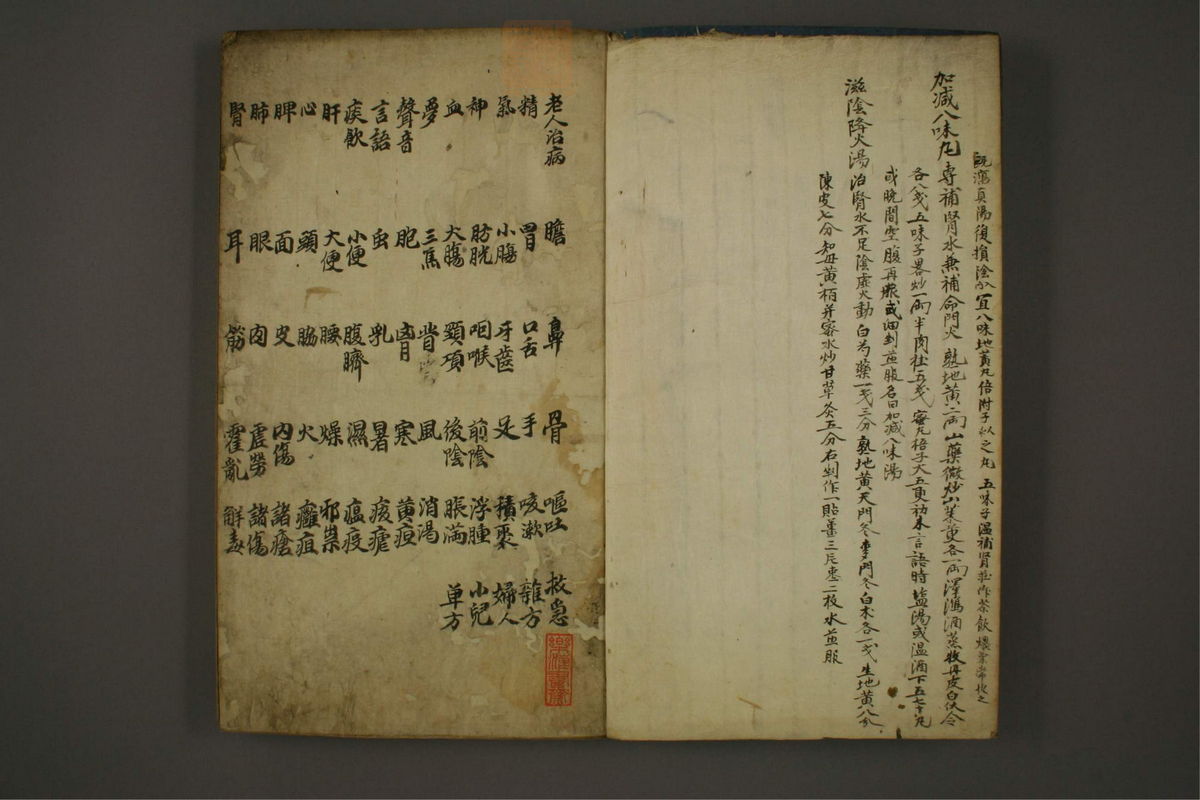 既瀉真陽復損陰 宜八味地黃丸倍附子 五味子溫補腎 作茶飲 常枚之
加減八味丸 專補腎水兼補命門火 熟地黃二兩山藥微炒山茱萸各一兩澤瀉酒蒸牧丹皮白伏令
各八戔五味子畧炒一兩半肉桂五戔 蜜丸梧子大五更初未言語時塩湯或温酒下五七十丸
或晩間空腹再服或㕮剉煎服名曰加減八味湯
滋陰降火湯 治腎水不足陰虛火動 白芍藥一戔三分熟地黃天門冬麥門冬白朮各一戔生地黃八分
陳皮七分知母黃栢并蜜水炒甘草灸五分右剉作一貼薑三片棗二枚水煎服
老人治病
精
氣
神
血
夢
聲音
言語
痰飲
肝
心
脾
肺
腎
膽
胃
小腸
膀胱
大腸
三焦
胞
虫
小便
大便
頭
面
眼
耳
鼻
口舌
牙齒
咽喉
頸項
背
胷
乳
腹臍
腰
脇
皮
肉
筋
骨
手
足
前陰
後陰
風
寒
暑
濕
燥
火
內傷
虛勞
霍亂
嘔吐
咳嗽
積聚
浮腫
脹滿
消渴
黃疸
痎瘧
瘟疫
邪祟
癰疽
諸瘡
諸傷
解毒
救急
雜方
婦人
小兒
単方
樂浪書齋